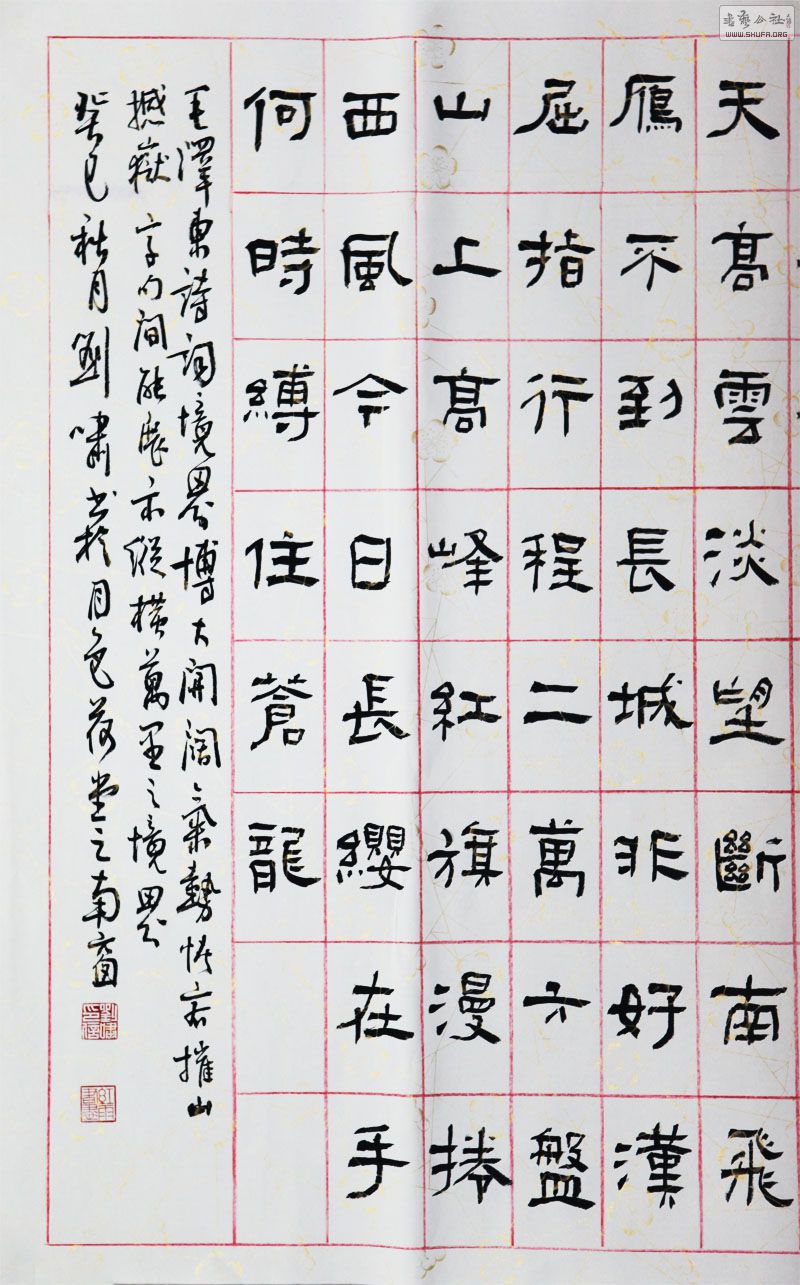 天髙雲淡望斷南飛
鴈不到長城非好漢
屈指行程二萬六盤
山上髙峰紅旗漫捲
西風今日長纓在手
何時縛住蒼龍
毛澤東詩詞境界博大開闊氣勢恢宏摧山
撼嶽字句間能展示縱橫萬里之境界
癸巳秋月劉嘯書於月色荷堂之南窗
書藝公社
WWW.SHUFA.ORG